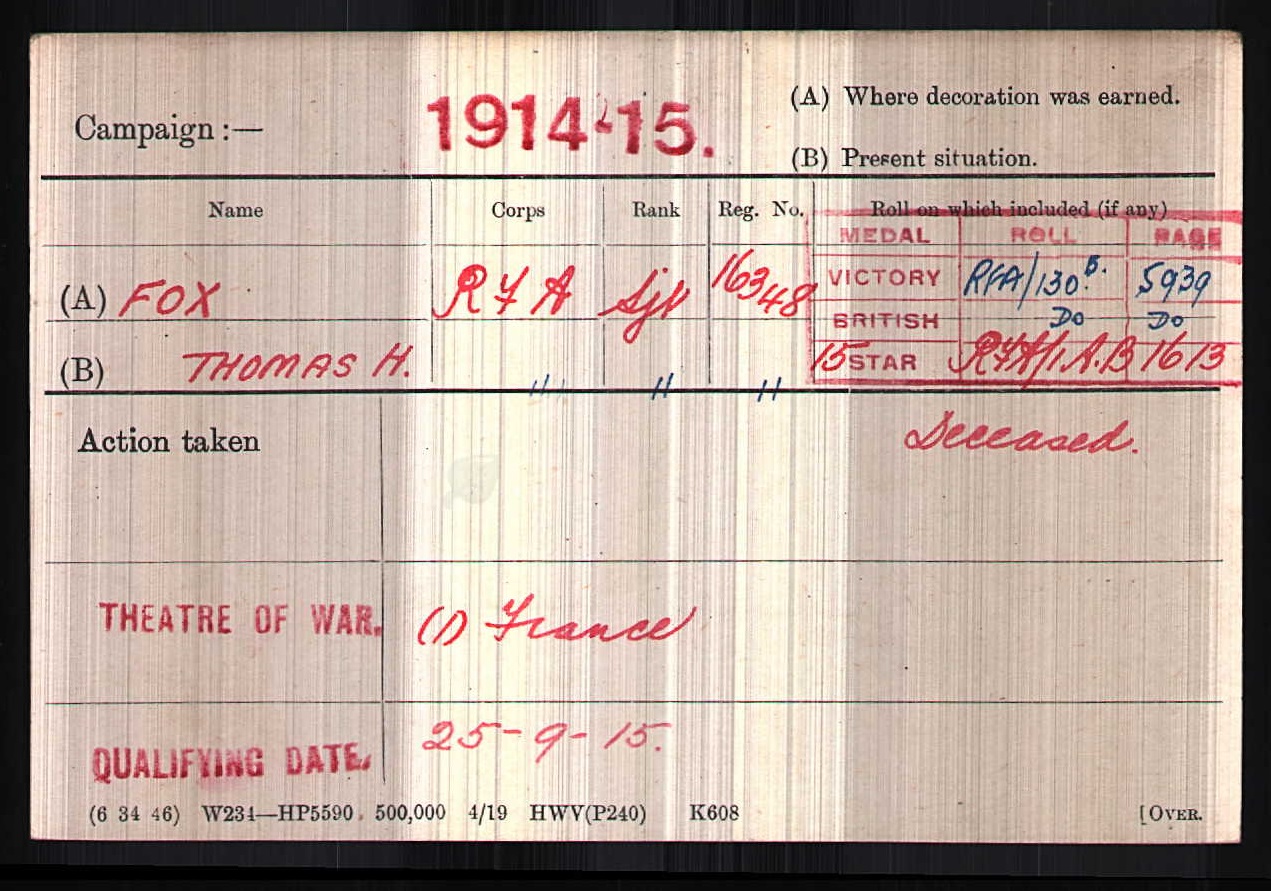 Campaign :— 1914-15. (A) Where decoration was earned.
(B) Present situation.
Name Corps Rank Reg. No. Roll on which included (if any)
MEDAL ROLL PAGE
(A) FOX R F A Sjt 16348 VICTORY RFA/130B. 5939
BRITISH Do Do
(B) THOMAS H. " " " 15 STAR RFA/1.A.B 1613
Action taken Deceased.
THEATRE OF WAR. (1) France
QUALIFYING DATE. 25-9-15.
(6 34 46) W234—HP5590 500,000 4/19 HWV(P240) K608 [OVER.